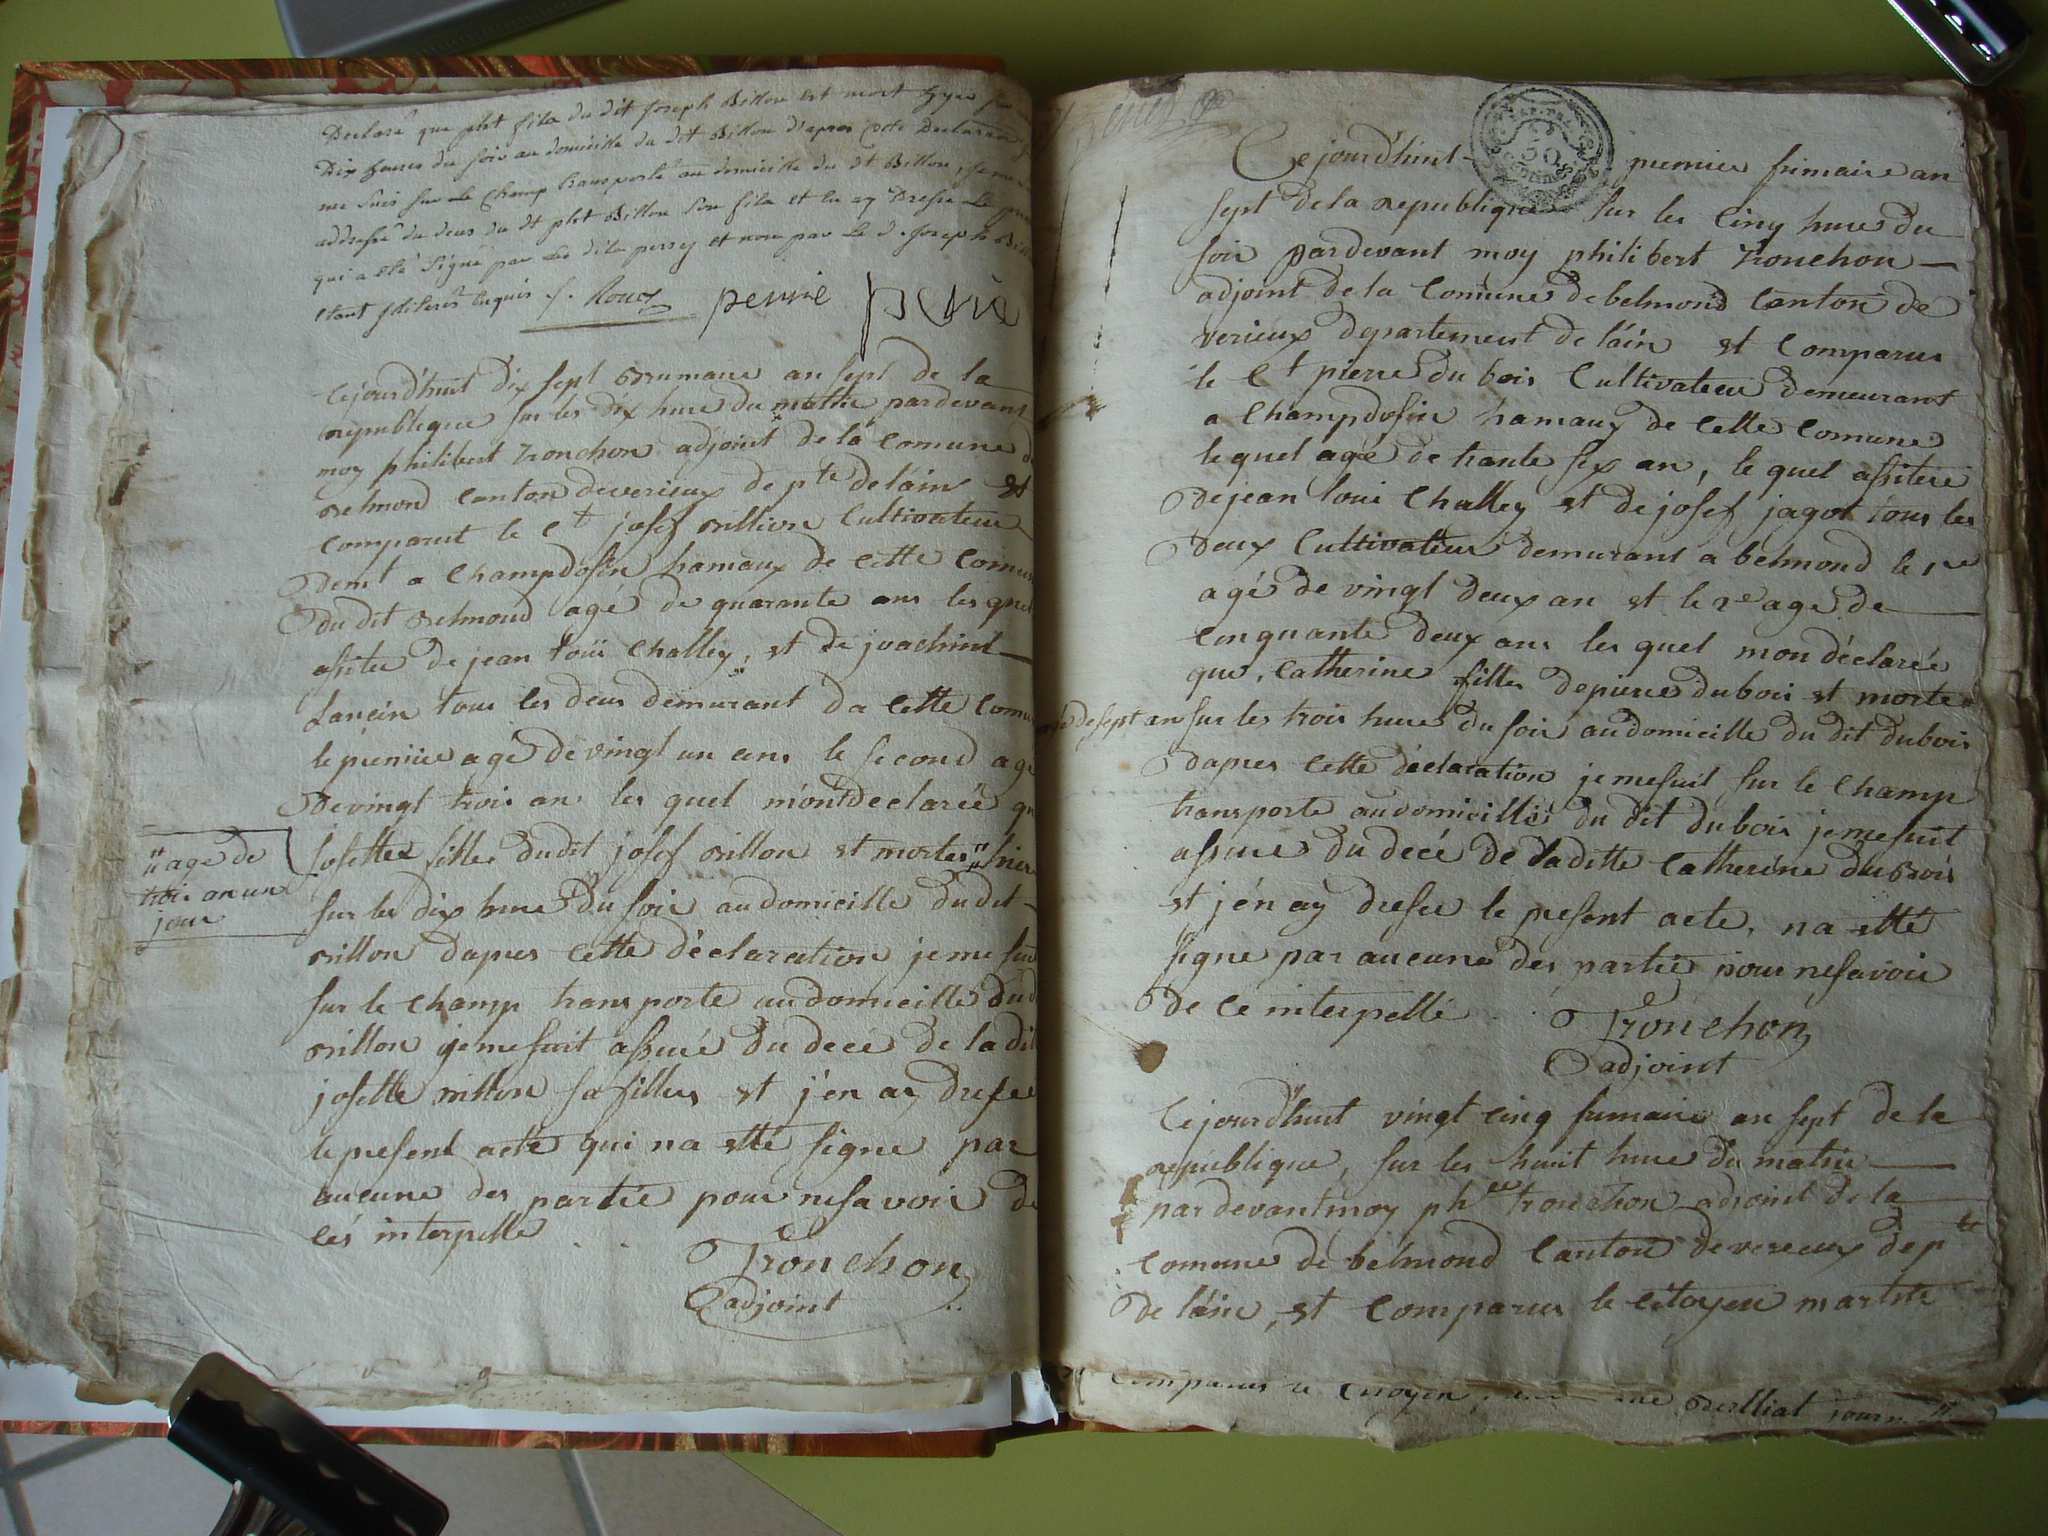 Declaré que pht fils du dit Joseph Billon est mort hyer
Dix heures du soir au domicille du dit Billon d'apres cette Declaration
me suis sur le Champ transporté au domicille du dt Billon, je me
du dt pht Billon son fils et en ay Dressé Le
qui a été signé par les dits perrey et non par Le d. Joseph
étant illiteré requis
perrié perié
Cejourd'huit dix sept brumaire an sept de la
republique sur les dix hure du matin pardevant
moy philibert Tronchon adjoint de la comune de
Belmond canton de verieux de pte de lain et
comparut le Ct josef Billion Cultivateur
demt a Champdosin hamaux de cette Comune
Du dit Belmond agé de quarante ans les quel
assiter de jean loui Challey, et de joachint
Lancin tous les deus demurant da cette Comu
le premiere age de vingt un ans le second age
De vingt trois an les quel m'ont declarée qu
Josettex fille dudit josef Billon et mortes " hier
" age de
trois an un
jour
sur les dix hure du soir au domicille du dit
Billon dapres cette déclaration je me sui
sur le champ transporte au domicille du d
Billon je me suit assuré du decé de la dit
josette Billon sa filles et j'en ay dresee
le present acte qui na etté signe par
aucune des partie pour ne savoir de
cés interpelle
Tronchon
adjoint
Ce jourd'huit premier frimaire an
sept de la republique sur les cinq hure du
soir pardevant moy philibert Tronchon
adjoint de la Comune de belmond Canton de
verieux departement de l'ain et Comparus
le Ct pierre du bois Cultivateur demeurant
a Champdosin hamaux de cette comune
lequel agé de trante six an, le quel assitere
de jean loui Challey et de josef jagot tous les
deux Cultivateur demurant a belmond le 1re
agé de vingt deux an et le 2e age de
cinquante deux ans les quel mon déclarée
que, Catherine filles de pierre dubois et morte
age de sept an sur les trois hure du soir au domicille du dit dubois
dapres cette déclaration je me suit sur le champ
transporte au domicille du dit dubois je me suit
assure du decé de laditte Catherine dubois
et j'en ay dresee le present acte, na etté
signe par aucune des partie pour ne savoir
de ce interpellé
Tronchon
adjoint
Cejourd'huit vingt cinq frimaire an sept de la
republique, sur les huit hure du matin
par devant moy phbt tronchon adjoint de la
comune de belmond Canton de verieux de pte
de l'ain, et Comparus le citoyen
Comparus le Citoyen